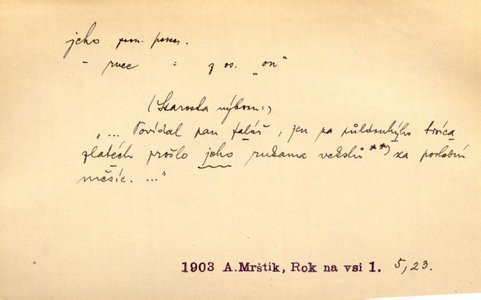 jeho pron. poses.
- ruce = 7 os. „on"
(Starosta výbom:)
„... Povidal pan faláš, jen pa půldruhýho tisíca
zlatéch prošlo jeho rukama vekslů **) za poslední
měsíc. ..."
1903 A.Mrštík, Rok na vsi 1. 5, 23.